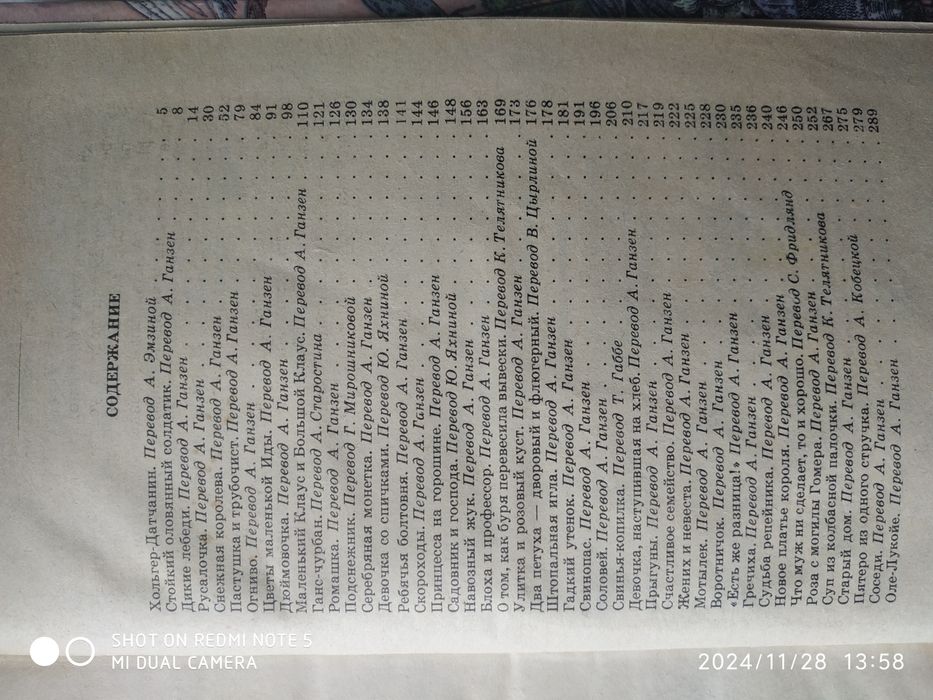 СОДЕРЖАНИЕ
Хольгер-Датчанин. Перевод А. Эмзиной 5
Стойкий оловянный солдатик. Перевод А. Ганзен 8
Дикие лебеди. Перевод А. Ганзен 14
Русалочка. Перевод А. Ганзен 30
Снежная королева. Перевод А. Ганзен 52
Пастушка и трубочист. Перевод А. Ганзен 79
Огниво. Перевод А. Ганзен 84
Цветы маленькой Иды. Перевод А. Ганзен 91
Дюймовочка. Перевод А. Ганзен 98
Маленький Клаус и Большой Клаус. Перевод А. Ганзен 110
Ганс-чурбан. Перевод А. Старостина 121
Ромашка. Перевод А. Ганзен 126
Подснежник. Перевод Г. Мирошниковой 130
Серебряная монетка. Перевод А. Ганзен 134
Девочка со спичками. Перевод Ю. Яхниной 138
Ребячья болтовня. Перевод А. Ганзен 141
Скороходы. Перевод А. Ганзен 144
Принцесса на горошине. Перевод А. Ганзен 146
Садовник и господа. Перевод Ю. Яхниной 148
Навозный жук. Перевод А. Ганзен 156
Блоха и профессор. Перевод А. Ганзен 163
О том, как буря перевесила вывески. Перевод К. Телятникова 169
Улитка и розовый куст. Перевод А. Ганзен 173
Два петуха — дворовый и флюгерный. Перевод В. Цырлиной 176
Штопальная игла. Перевод А. Ганзен 178
Гадкий утенок. Перевод А. Ганзен 181
Свинопас. Перевод А. Ганзен 191
Соловей. Перевод А. Ганзен 196
Свинья-копилка. Перевод Т. Габбе 206
Девочка, наступившая на хлеб. Перевод А. Ганзен 210
Прыгуны. Перевод А. Ганзен 217
Счастливое семейство. Перевод А. Ганзен 219
Жених и невеста. Перевод А. Ганзен 222
Мотылек. Перевод А. Ганзен 225
Воротничок. Перевод А. Ганзен 228
«Есть же разница!» Перевод А. Ганзен 230
Гречиха. Перевод А. Ганзен 235
Судьба репейника. Перевод А. Ганзен 236
Новое платье короля. Перевод А. Ганзен 240
Что муж ни сделает, то и хорошо. Перевод С. Фридлянд 246
Роза с могилы Гомера. Перевод А. Ганзен 250
Суп из колбасной палочки. Перевод К. Телятникова 252
Старый дом. Перевод А. Ганзен 267
Пятеро из одного стручка. Перевод А. Кобецкой 275
Соседи. Перевод А. Ганзен 279
Оле-Лукойе. Перевод А. Ганзен 289
SHOT ON REDMI NOTE 5
MI DUAL CAMERA
2024/11/28 13:58